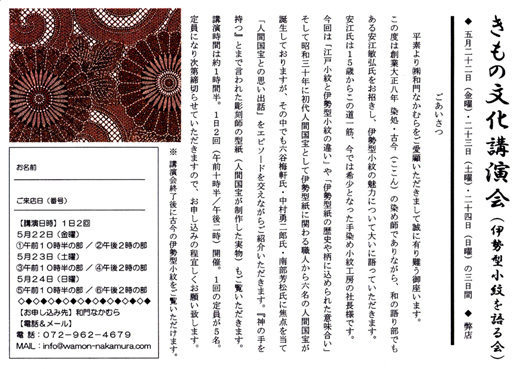 きもの文化講演会（伊勢型小紋を語る会）
◆ 五月二十二日（金曜）・二十三日（土曜）・二十四日（日曜）の三日間 ◆ 弊店
ごあいさつ
平素より㈱和門なかむらをご愛顧いただきまして誠に有り難う御座います。
この度は創業大正八年 染処・古今（ここん）の染め師でありながら、和の語り部でも
ある安江敏弘氏をお招きし、伊勢型小紋の魅力について大いに語っていただきます。
安江氏は１５歳からこの道一筋、今では希少となった手染め小紋工房の社長様です。
今回は「江戸小紋と伊勢型小紋の違い」や「伊勢型紙の歴史や柄に込められた意味合い」
そして昭和三十年に初代人間国宝として伊勢型紙に関わる職人から六名の人間国宝が
誕生しておりますが、その中でも六谷梅軒氏・中村勇二郎氏・南部芳松氏に焦点を当て
「人間国宝との思い出話」をエピソードを交えながらご紹介いただきます。『神の手を
持つ』とまで言われた彫刻師の型紙（人間国宝が制作した実物）もご覧いただきます。
講演時間は約１時間半。１日２回（午前十時半／午後二時）開催。１回の定員が５名。
定員になり次第締切らせていただきますので、お申し込みの程宜しくお願い致します。
※ 講演会終了後に古今の伊勢型小紋をご覧いただけます。
お名前
ご来店日（番号）
【講演日時】１日２回
５月２２日（金曜）
①午前１０時半の部 ／ ②午後２時の部
５月２３日（土曜）
③午前１０時半の部 ／ ④午後２時の部
５月２４日（日曜）
⑤午前１０時半の部 ／ ⑥午後２時の部
◇◆◇◆◇◆◇◆◇◆◇◆◇◆◇◆◇
【お申し込み先】和門なかむら
【電話＆メール】
電 話：０７２-９６２-４６７９
MAIL：info@wamon-nakamura.com